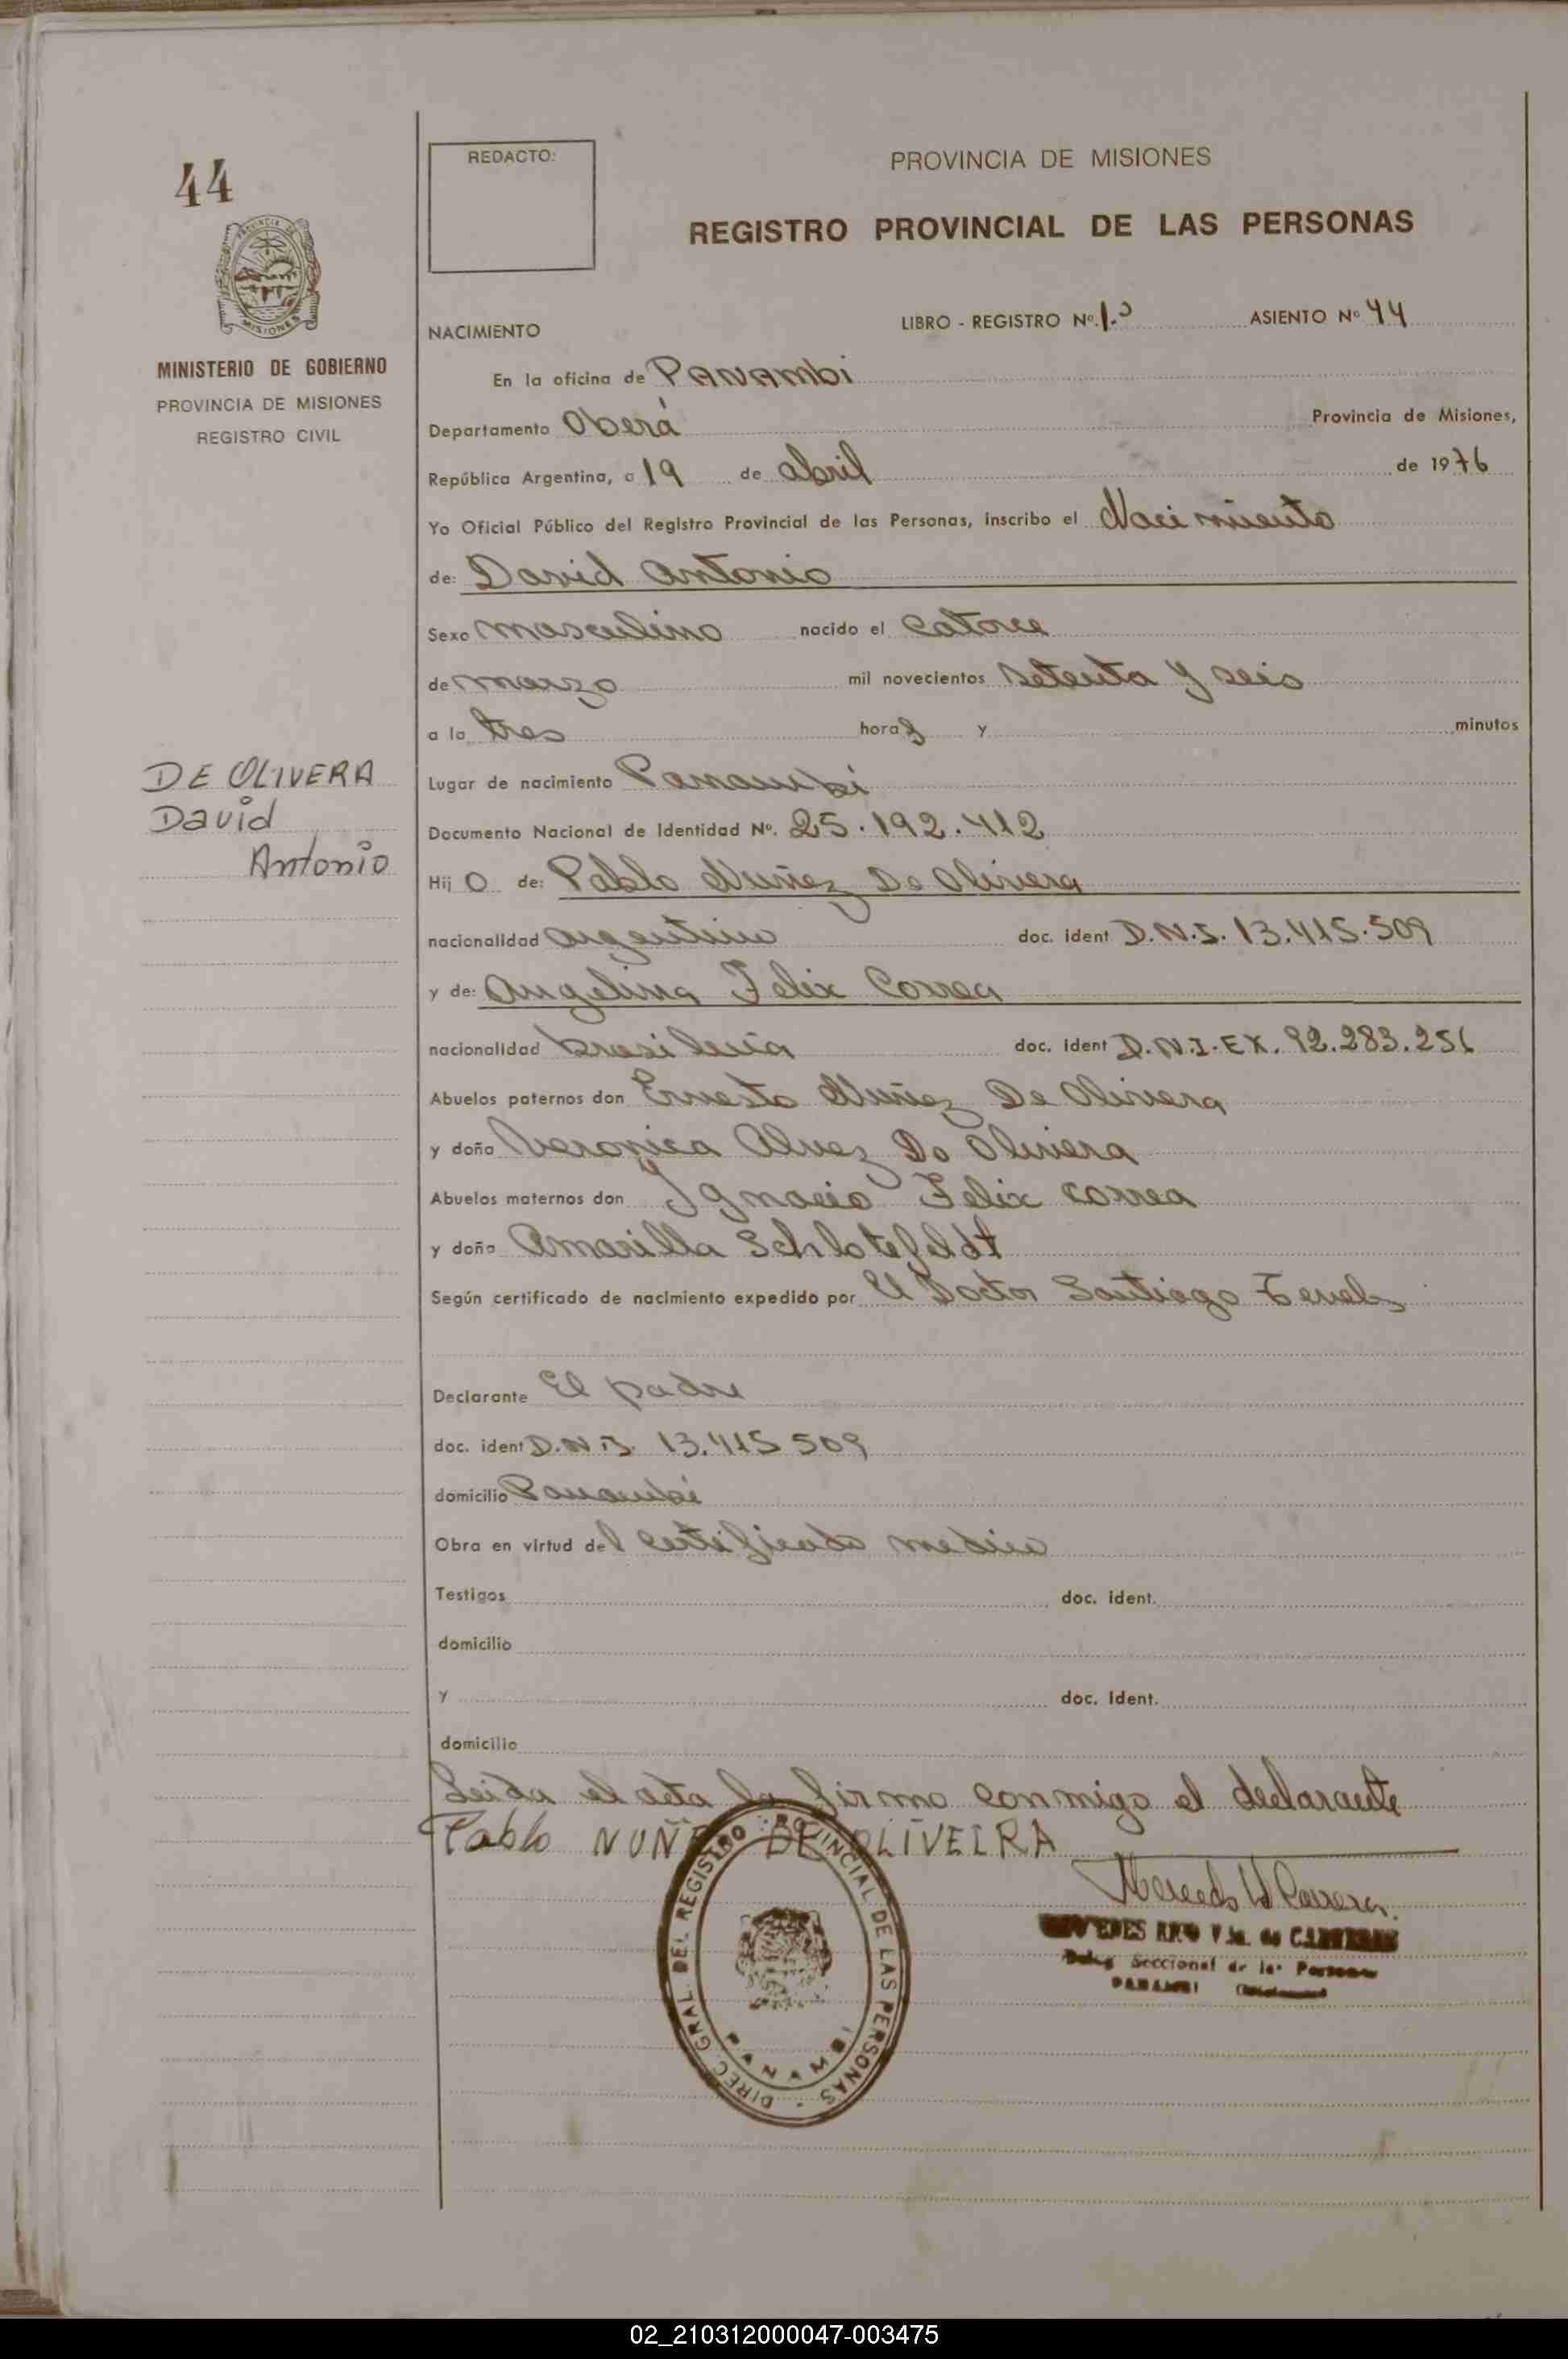 44
REDACTO:
PROVINCIA DE MISIONES
REGISTRO PROVINCIAL DE LAS PERSONAS
PROVINCIA DE
MISIONES
MINISTERIO DE GOBIERNO
PROVINCIA DE MISIONES
REGISTRO CIVIL
NACIMIENTO LIBRO - REGISTRO Nº. 1.º ASIENTO Nº 44
En la oficina de PANAMbi
Departamento Oberá Provincia de Misiones,
República Argentina, a 19 de abril de 1976
Yo Oficial Público del Registro Provincial de las Personas, inscribo el Nacimiento
de: David Antonio
Sexo masculino nacido el catorce
de marzo mil novecientos setenta y seis
a la tres horas y minutos
DE OLIVERA
David
Antonio
Lugar de nacimiento Panambi
Documento Nacional de Identidad Nº. 25.192.412
Hijo de: Pablo Nuñez De Olivera
nacionalidad argentino doc. ident D.N.I. 13.415.509
y de: Angelina Felix Correa
nacionalidad brasileña doc. ident D.N.I. EX. 92.283.256
Abuelos paternos don Ernesto Nuñez De Olivera
y doña Veronica Alvez Do Olivera
Abuelos maternos don Ignacio Felix Correa
y doña Amarilla Schlotefeldt
Según certificado de nacimiento expedido por El Doctor Santiago
Declarante El padre
doc. ident D.N.I. 13.415 509
domicilio Panambi
Obra en virtud del certificado medico
Testigos doc. ident.
domicilio
y doc. ident.
domicilio
Leida el acta la firmo conmigo el declarante
Pablo NUÑE DE OLIVEIRA
DIREC. GRAL. DEL REGISTRO PROVINCIAL DE LAS PERSONAS -
PANAMBI
Vda. de
Seccional de las Personas
PANAMBI
02_210312000047-003475